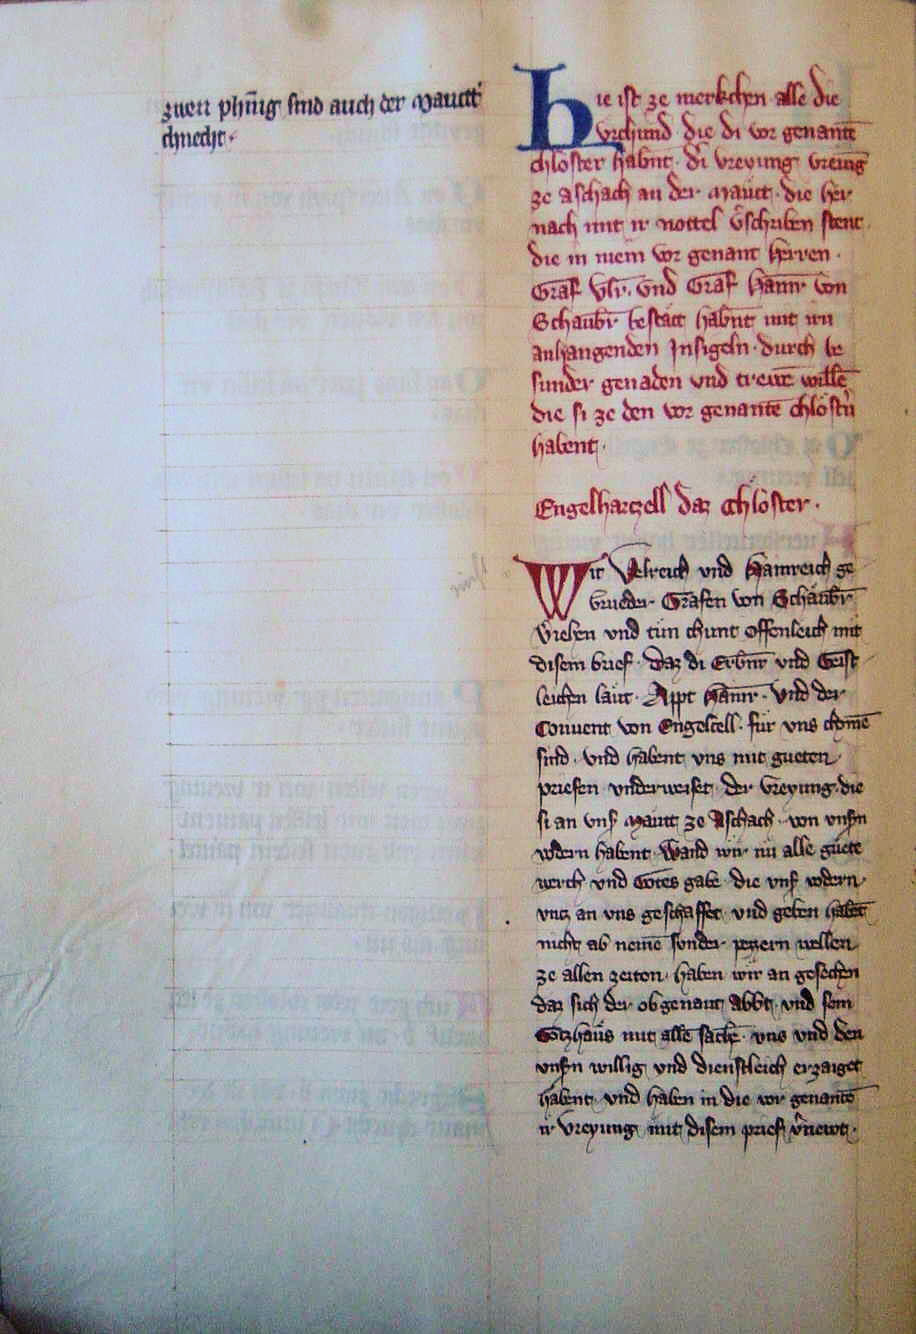 zwen phn̄ig sind auch der Mautt
chnecht·
Hie ist ze merkchen alle die
vrchund die di vor genantē
chloster habnt· di vreyung
ze aschach an der mautt· die her
nach mit ir nottel v̄schriben stent·
die in mein vor genant herren·
Graf Vlr̄· vnd Graf Hainr̄ von
Schaunbr̄ bestatt habnt mit irn
anhangenden Insigeln· durch be
sunder genaden vnd trewē willē
die si ze den vor genantē chlöstn̄
habent·
Engelhartzell daz Chloster·
Wir Vlreich vnd Hainreich ge
brueder· Grafen von Schaunbr̄
v̄iehen vnd tun chunt offenleich mit
disem brief· daz di Erbn̄r vnd Geist
leichen laut· Appt Hainr̄· vnd der
Conuent von Engelcell· fur vns chomē
sind· vnd habent vns mit gueten
priefen vnderweiset· der vreyung· die
si an vnsr̄ Mautt ze Aschach· von vnsn̄
vodern habent· Wand wir nu alle guete
werch vnd Gotes gabe· die vnsr̄ vodern·
vntz an vns geschaffet· vnd geben habēt
nicht ab nemē sunder pezzern wellen
ze allen zeiten· haben wir an gesechen
daz sich der obgenant abbt· vnd sein
Gotzhaus mit allē sachē· vns vnd den
vnsn̄ willig vnd dienstleich erzaiget
habent· vnd haben in die vor genantē
ir vreyung mit disem prief v̄newt·